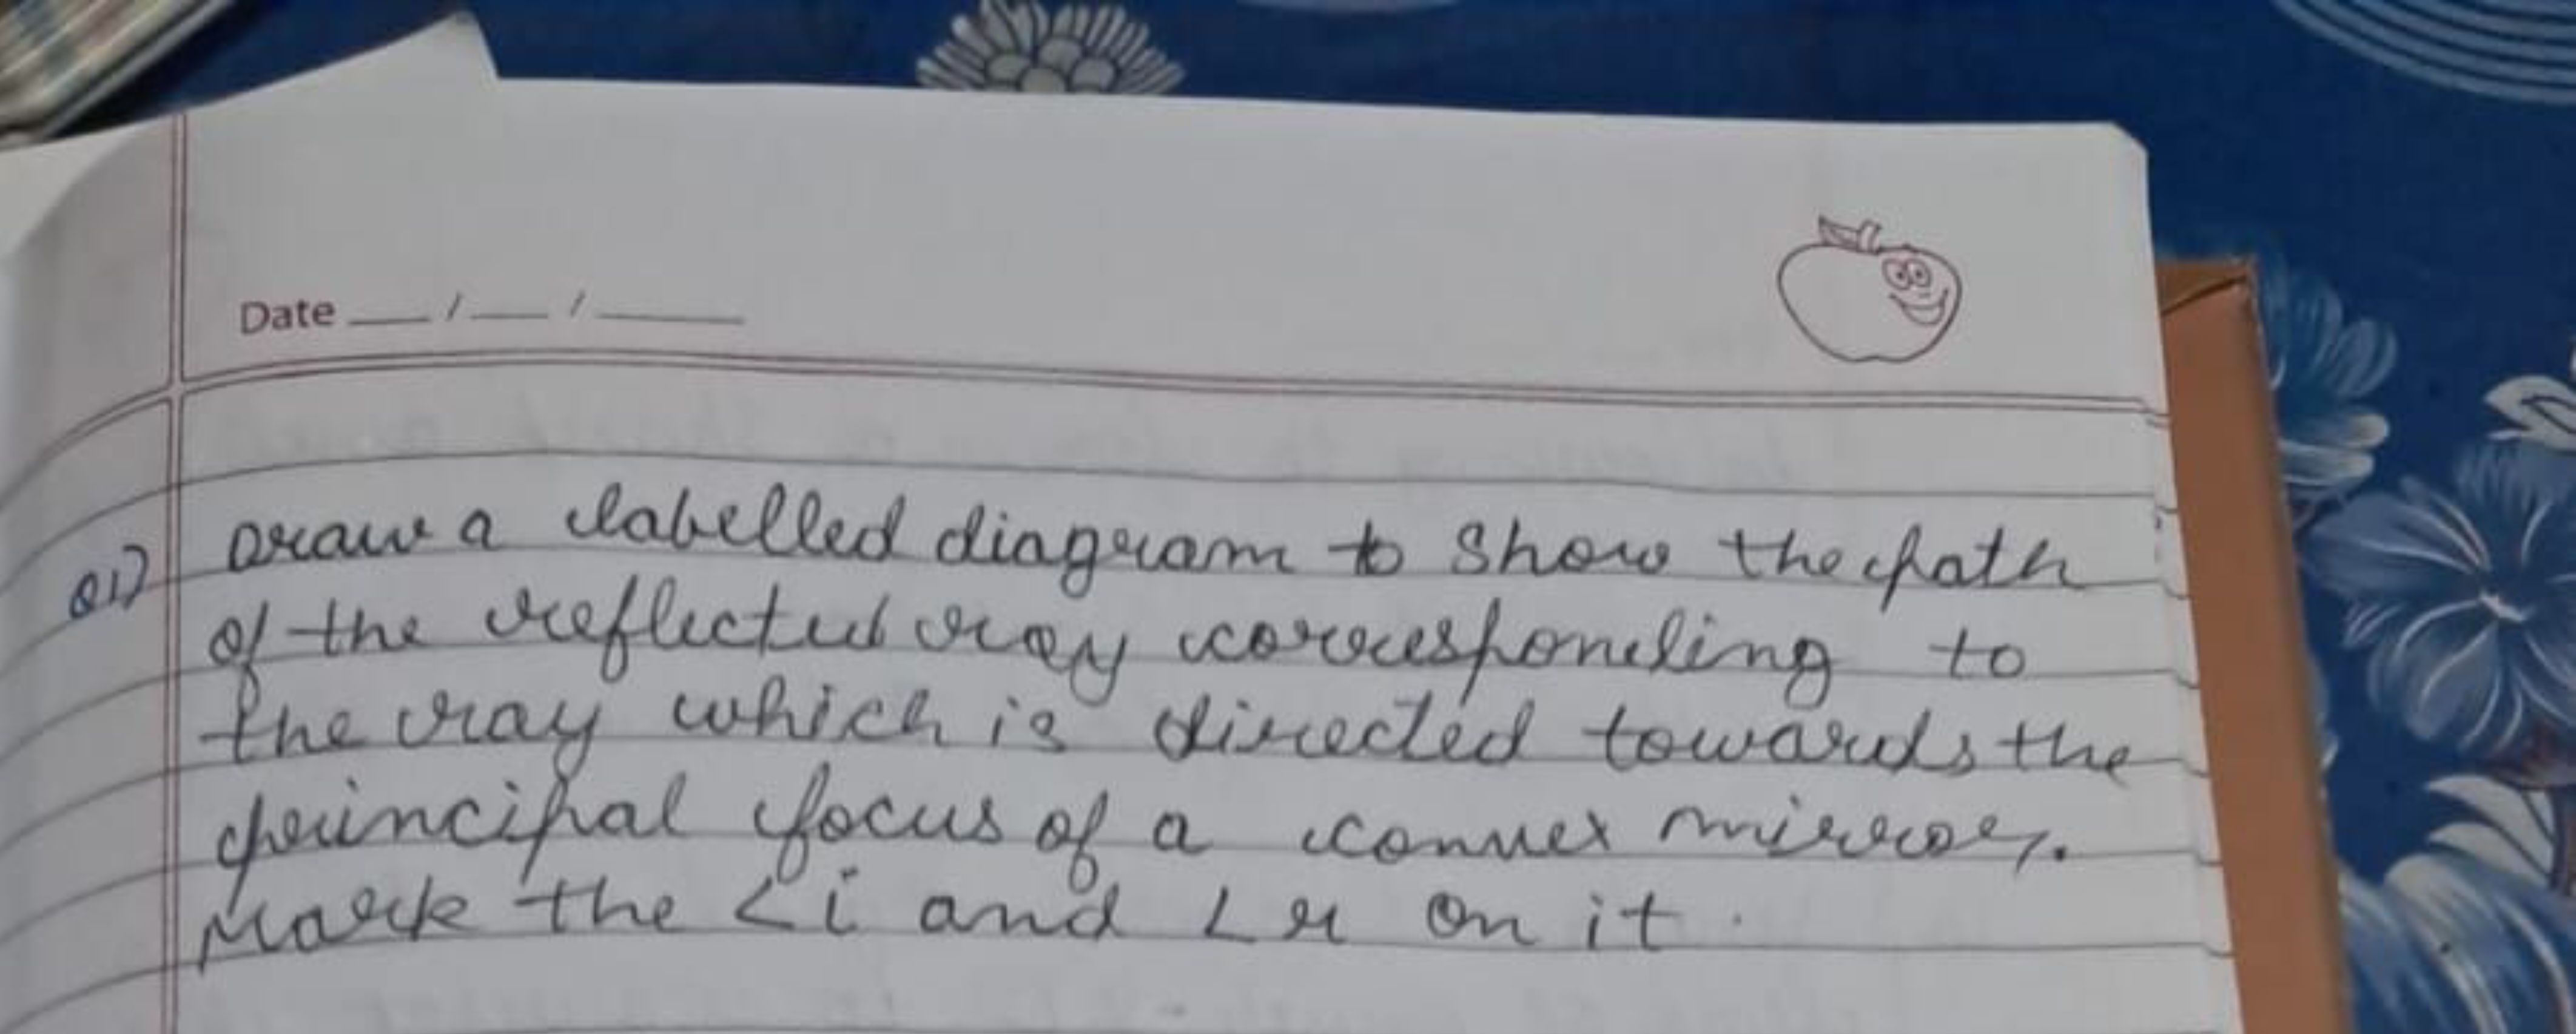 Date __/__/____
Q1) Draw a labelled diagram to show the path
of the reflected ray corresponding to
the ray which is directed towards the
principal focus of a convex mirror.
Mark the ∠i and ∠r on it.